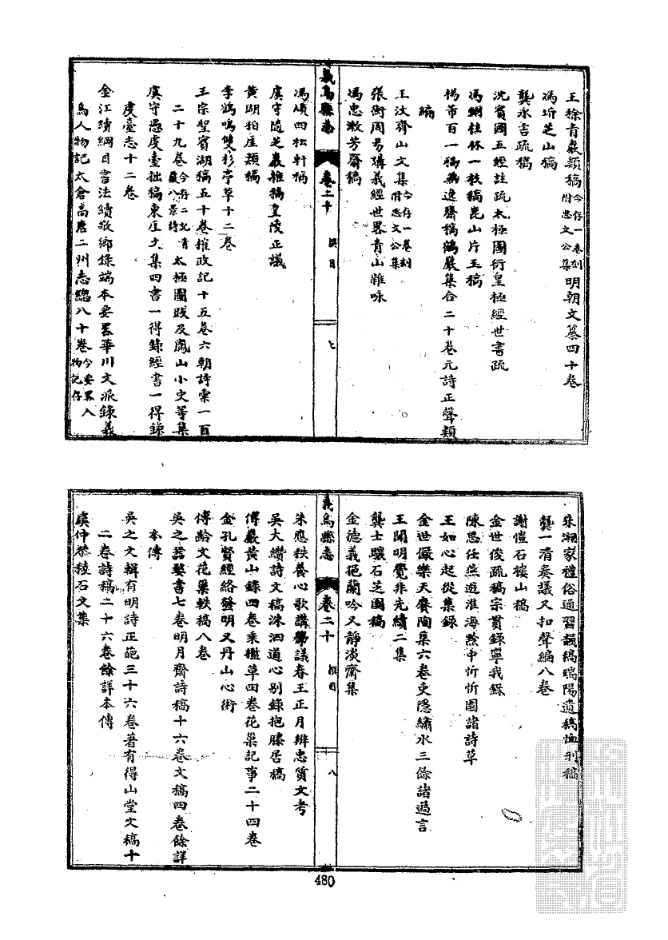 王徐青巖穎稿今存一卷刻附忠文公集明朝文纂四十卷
馮圻芝山稿
龔永吉疏稿
沈賓國五經註疏太極圖衍皇極經世書疏
馮網拄杖一枝稿崑山片玉稿
楊芾百一稿無逸齋稿鶴巖集合二十卷元詩正聲類
編
王汶齊山文集今存一卷刻附忠文公集
張衡周易講義經世界青山雜咏
馮忠漱芳齋稿
義烏縣志
卷二十
撰目
七
馮頌四松軒稿
虞守隨芝巖雜稿皇陵正議
黃瑚柏崖穎稿
李鶴鳴雙杉亭草十二卷
王宗聖賓湖稿五十卷榷政記十五卷六朝詩彙一百
二十九卷今存二記有嚴八景詩太極圖跋及鳳山小史等集
虞守愚虔臺拙稿東崖文集四書一得錄經書一得錄
虔臺志十二卷
金江續綱目書法續敬鄉錄端本要畧華川文派錄義
烏人物記太倉高唐二州志總八十卷今要畧人物記存
朱湘家禮俗通習譔稿瑞陽遺稿恤刑稿
龔一清奏議又扣聲編八卷
謝愷石樓山稿
金世俊疏稿宗貫錄寧我錄
陳思任燕遊淮海黔中忻忻園諸詩草
王如心起從集錄
金世儼樂天賡陶集六卷吏隱繡水三餘諸過言
王開明覺非先續二集
龔士驤石芝園稿
金德義挹蘭吟又靜淡齋集
義烏縣志
卷二十
撰目
八
朱應秩養心歌講學議春王正月辨忠質文考
吳大纘詩文稿洙泗道心別錄抱膝居稿
傅巖黃山錄四卷乘槎草四卷花巢記事二十四卷
金孔賢經絡發明又丹山心術
傅齡文花巢軼稿八卷
吳之器婺書七卷明月齋詩稿十六卷文稿四卷餘詳
本傳
吳之文輯有明詩正葩三十六卷著有得山堂文稿十
二卷詩稿二十六卷餘詳本傳
虞仲恭稜石文集
480